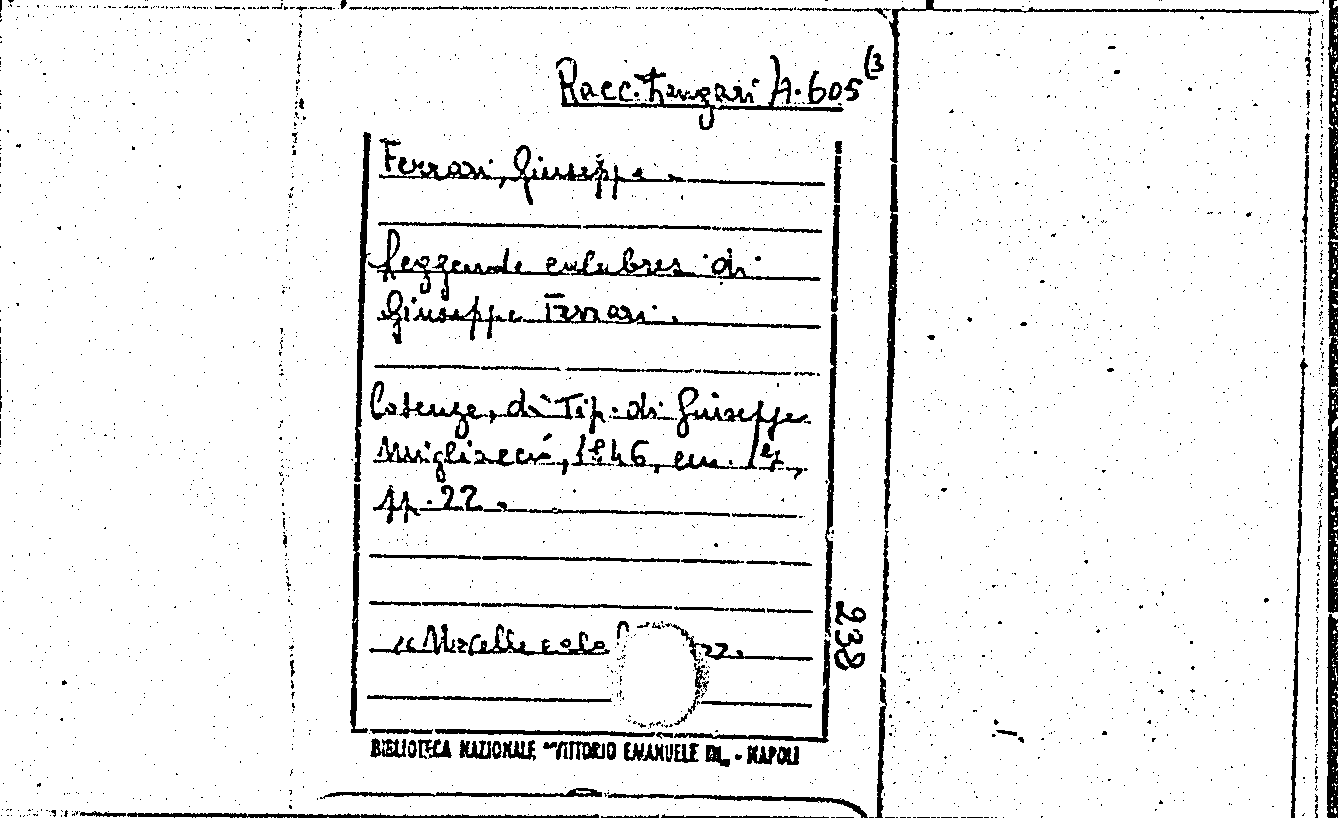 Racc. Zangari A. 605 (3
Ferrari, Giuseppe.
Leggende calabresi di
Giuseppe Ferrari.
Cosenza, di Tip. di Giuseppe
Migliaccio, 1846, in
pp. 22.
"Miscellanea
238
BIBLIOTECA NAZIONALE "VITTORIO EMANUELE III" - NAPOLI